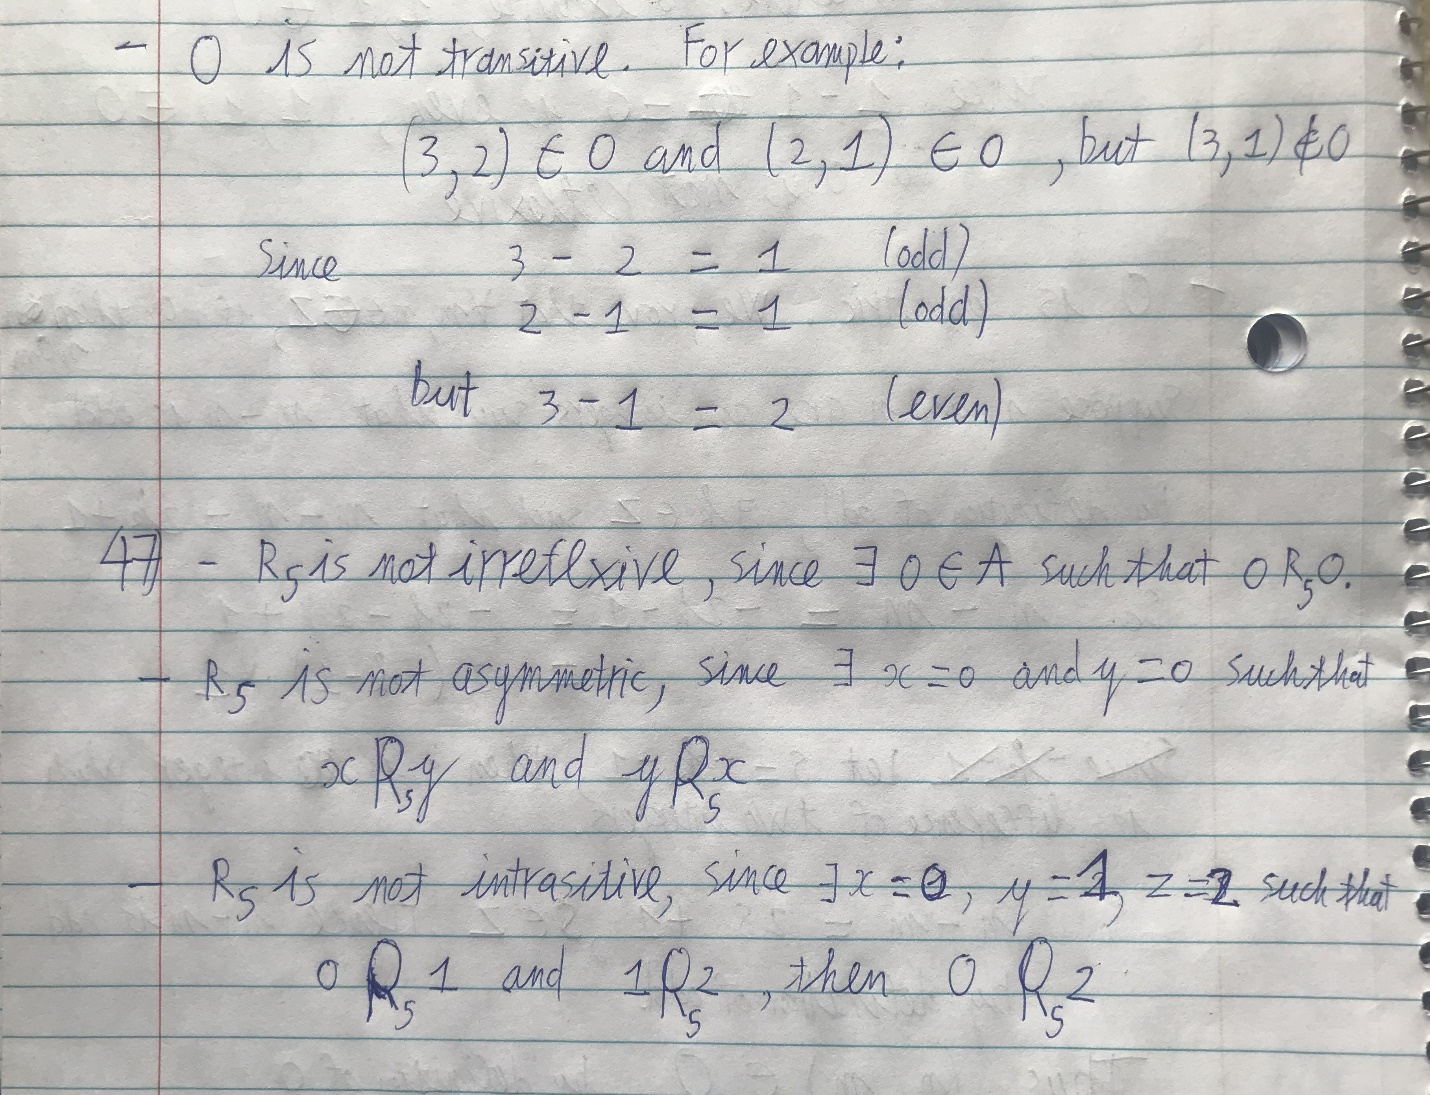 - O is not transitive. For example:
(3,2) ∈ O and (2,1) ∈ O, but (3,1) ∉ O
Since 3 - 2 = 1 (odd)
2 - 1 = 1 (odd)
but 3 - 1 = 2 (even)
47) - R₅ is not irreflexive, since ∃ 0 ∈ A such that 0 R₅ 0.
- R₅ is not asymmetric, since ∃ x = 0 and y = 0 such that
x R₅ y and y R₅ x
- R₅ is not intrasitive, since ∃ x = 0, y = 1, z = 2 such that
0 R₅ 1 and 1 R₅ 2, then 0 R₅ 2